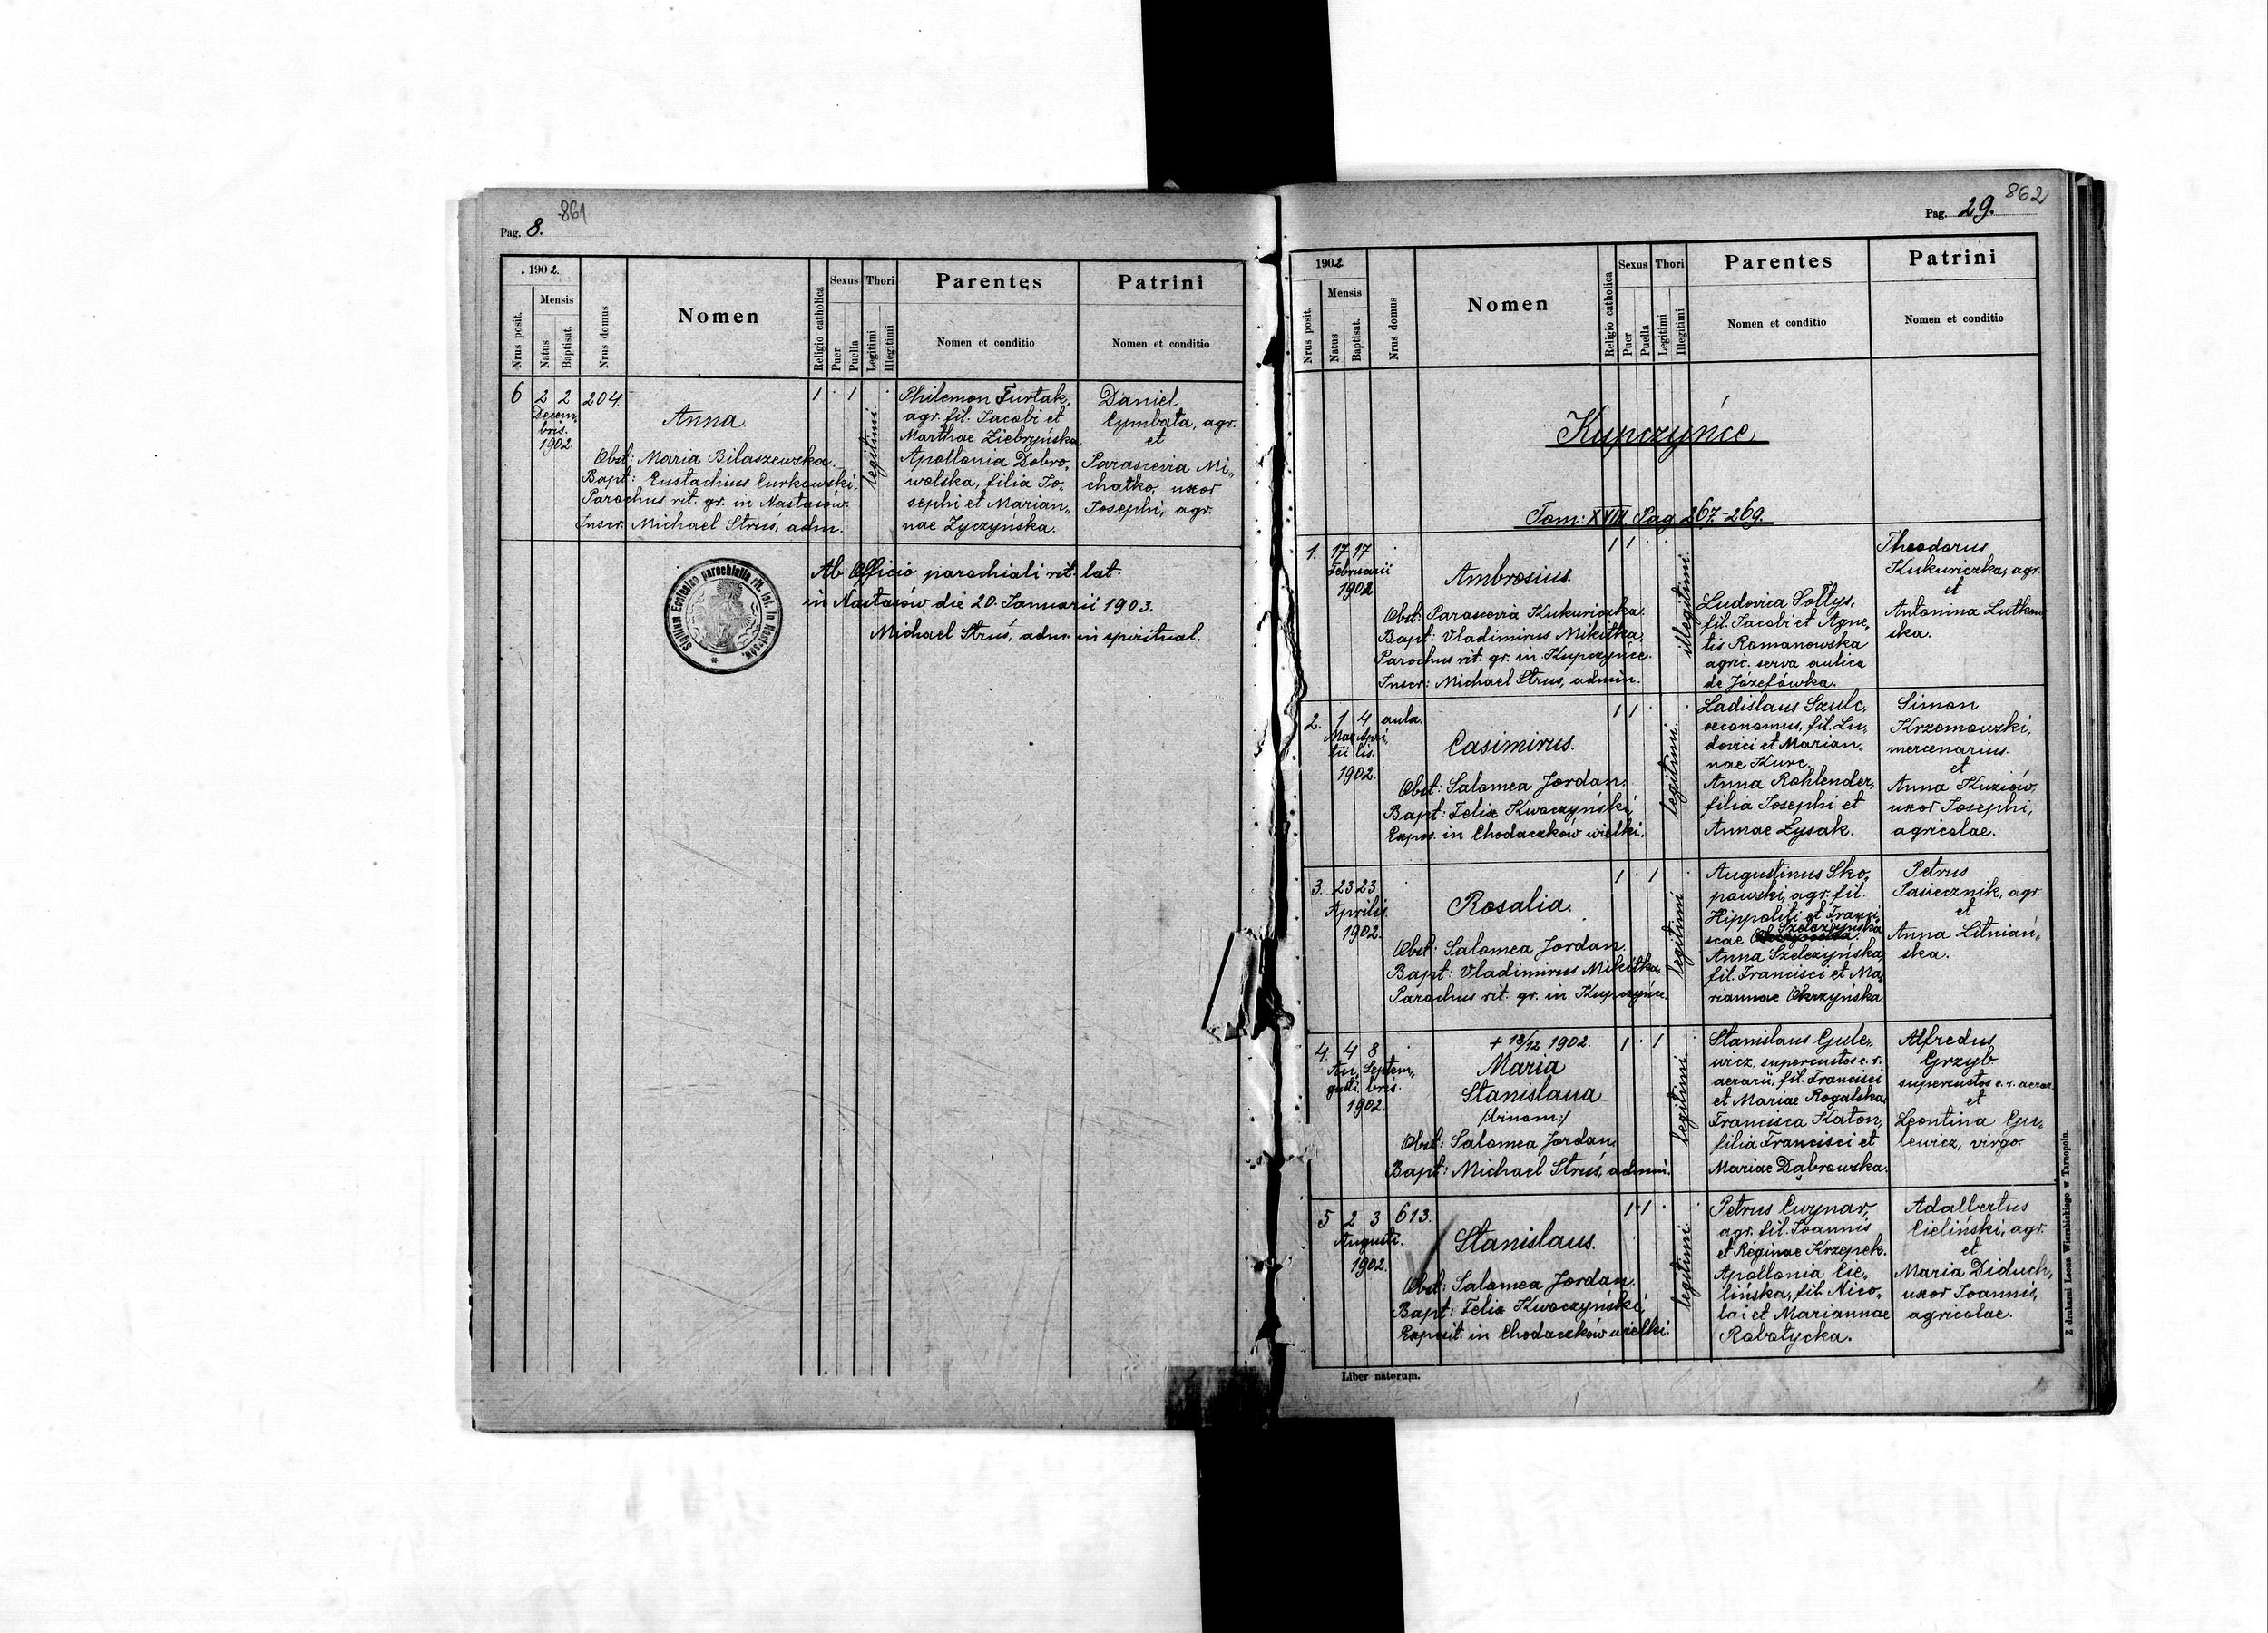 861
Pag. 8.
1902.
Nrus posit.
Mensis
Natus
Baptisat.
Nrus domus
Nomen
Religio catholica
Sexus
Puer
Puella
Thori
Legitimi
Illegitimi
Parentes
Nomen et conditio
Patrini
Nomen et conditio
6 2 2 204.
Decem„
bris.
1902.
Anna
Obst: Maria Bilaszewska.
Bapt: Eustachius Curkowski,
Parochus rit. gr. in Nastasów.
Inscr. Michael Struś, adm.
1 . 1 .
legitimi
Philemon Furtak,
agr. fil. Jacobi et
Marthae Ziebryńska
Apollonia Dobro„
wolska, filia Jo„
sephi et Marian„
nae Życzyńska.
Daniel
Cymbała, agr.
et
Parascevia Mi„
chałko, uxor
Josephi, agr.
Sigillum Ecclesiae parochialis rit. lat. in Nastasów.
Ab Officio parochiali rit. lat.
in Nastasów die 20. Januarii 1903.
Michael Struś, adm. in spiritual.
862
Pag. 29.
1902
Nrus posit.
Mensis
Natus
Baptisat.
Nrus domus
Nomen
Religio catholica
Sexus
Puer
Puella
Thori
Legitimi
Illegitimi
Parentes
Nomen et conditio
Patrini
Nomen et conditio
Kupczyńce
Tom: XVIII. Pag. 267.-269.
1. 17 17
Februarii
1902
Ambrosius.
Obst: Parascevia Kukuriczka.
Bapt: Vladimirus Mikitka,
Parochus rit. gr. in Kupczyńce.
Inscr: Michael Struś, admin.
1 1 .
illegitimi
Ludovica Sołtys,
fil. Jacobi et Agne„
tis Romanowska
agric. serva aulica
de Józefówka.
Theodorus
Kukuriczka, agr.
et
Antonina Lutkow
ska.
2. 1 4 aula.
Mar Apri
tii lis.
1902.
Casimirus.
Obst: Salomea Jordan.
Bapt: Felix Kwoczyński,
Expos. in Chodaczków wielki.
1 1 . .
legitimi
Ladislaus Szulc,
oeconomus, fil. Lu„
dovici et Marian„
nae Kurc.
Anna Rohlender,
filia Josephi et
Annae Łysak.
Simon
Krzemowski,
mercenarius.
et
Anna Kuziów,
uxor Josephi,
agricolae.
3. 23 23 .
Aprilis
1902.
Rosalia.
Obst: Salomea Jordan.
Bapt: Vladimirus Mikitka,
Parochus rit. gr. in Kupczyńce.
1 . 1 .
legitimi
Augustinus Sko„
powski, agr. fil.
Hippoliti et Franci„
Szeleżyńska
scae
Anna Szeleżyńska,
fil. Francisci et Ma„
riannae Okrzyńska.
Petrus
Pasiecznik, agr.
et
Anna Litniań„
ska.
4. 4 8 .
Au„ Septem„
gusti bris.
1902.
+ 18/12 1902.
Maria
Stanislaua
/:binom:/
Obst: Salomea Jordan,
Bapt: Michael Struś, admin.
1 . 1 .
legitimi
Stanislaus Gule„
wicz, supercustos c. r.
aerarii, fil. Francisci
et Mariae Rogalska,
Francisca Katon,
filia Francisci et
Mariae Dąbrowska.
Alfredus
Grzyb
supercustos c. r. aerar.
et
Leontina Gu„
lewicz, virgo.
5 2 3 613.
Augusti.
1902.
Stanislaus.
Obst: Salomea Jordan.
Bapt: Felix Kwoczyński,
Exposit. in Chodaczków wielki.
1 1 . .
legitimi
Petrus Cwynar,
agr. fil. Joannis
et Reginae Krzepek.
Apollonia Cie„
lińska, fil. Nico„
lai et Mariannae
Robotycka.
Adalbertus
Cieliński, agr.
et
Maria Diduch,
uxor Joannis,
agricolae.
Liber natorum.
Z drukarni Leona Wierzbickiego w Tarnopolu.